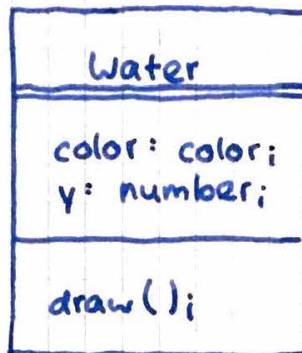 Water
color: color;
y: number;
draw();